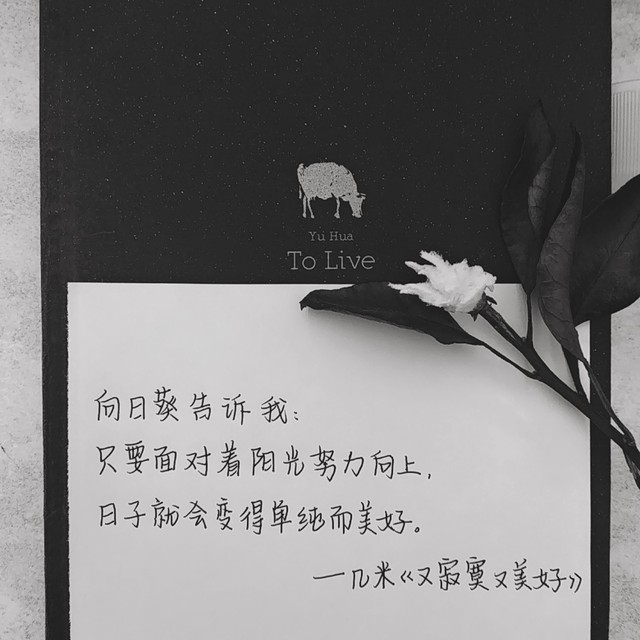 Yu Hua
To Live
向日葵告诉我:
只要面对着阳光努力向上,
日子就会变得单纯而美好。
—几米《又寂寞又美好》